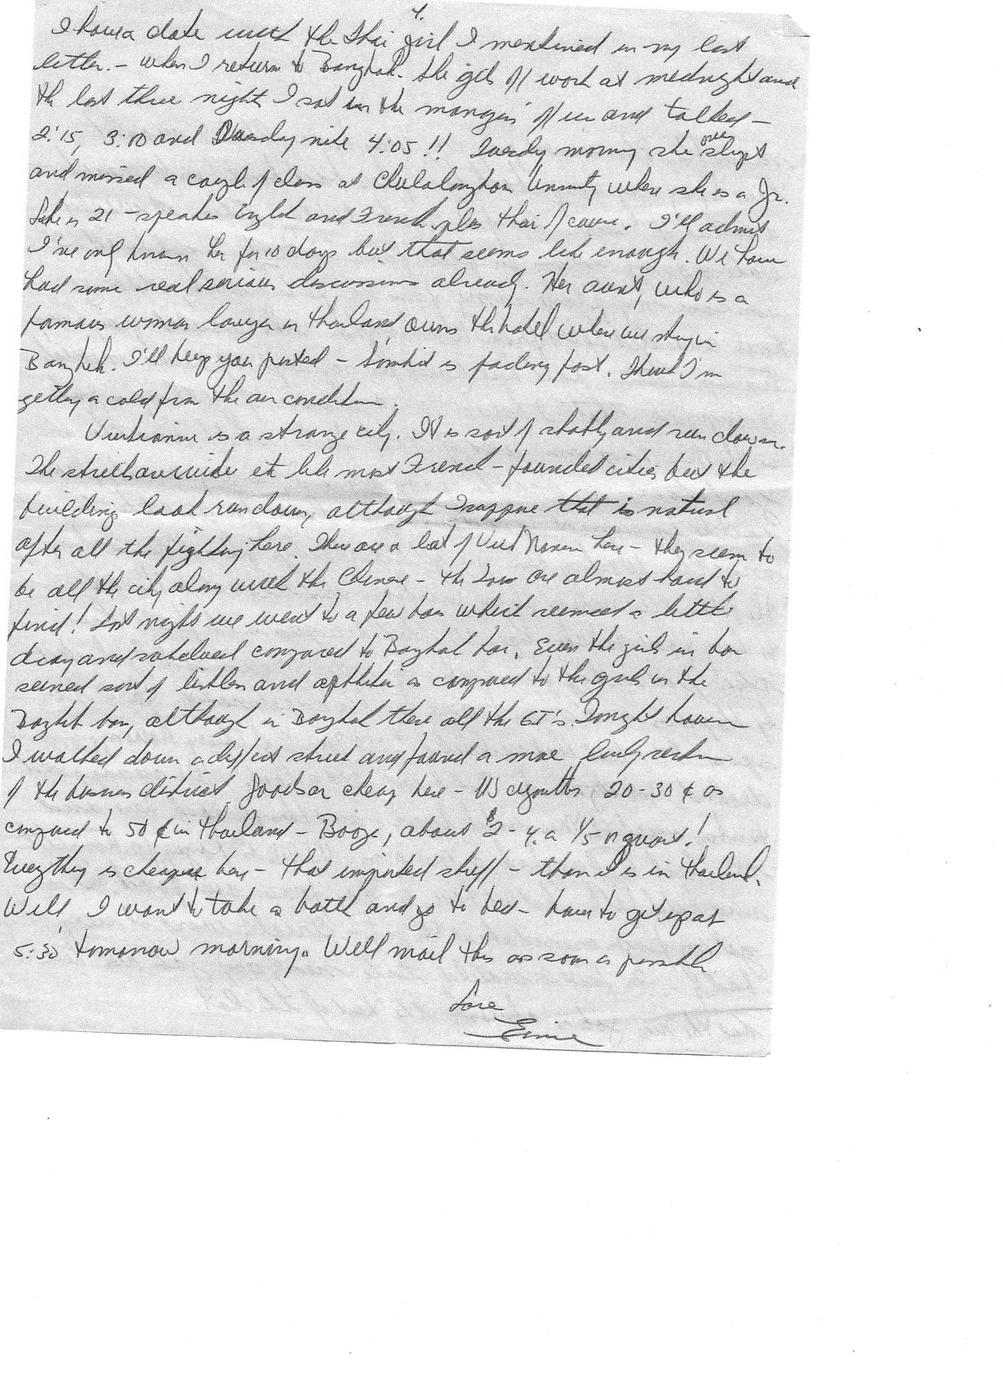 4.
I have a date with the Thai girl I mentioned in my last
letter. - when I return to Bangkok. She gets off work at midnight and
the last three nights I sat in the managers' office and talked -
2:15, 3:10 and Tuesday nite 4:05!! Tuesday morning she over slept
and missed a couple of class at Chulalongkorn University where she is a Jr.
She is 21 - speaks English and French plus Thai of course. I'll admit
I've only known her for 10 days but that seems like enough. We have
had some real serious discussions already. Her aunt, who is a
famous woman lawyer in Thailand owns the hotel where we stay in
Bangkok. I'll keep you posted - is fading fast. Think I'm
getting a cold from the air condition.
Vientianne is a strange city. It is sort of shabby and run down.
The streets are wide etc like most French - founded cities but the
buildings look run down, although I suppose that is natural
after all the fighting here. There are a lot of Viet Namese here - they seem to
be all the city along with the Chinese - the Lao are almost hard to
find! Last night we went to a few bars which seemed a little
and subdued compared to Bangkok bars. Even the girls in bar
seemed sort of listless and apathetic as compared to the girls in the
Bangkok bars, although in Bangkok there all the GI's. Tonight however
I walked down a different street and found a more lively section
of the business district. Goods are cheap here - US cigarettes 20-30 ¢ as
compared to 50 ¢ in Thailand - Booze, about $2-4. a 1/5 or quart!
Everything is cheaper here - that imported stuff - than it is in Thailand.
Well I want to take a bath and go to bed - have to get up at
5:30 tomorrow morning. Will mail this as soon as possible.
Love
Ernie